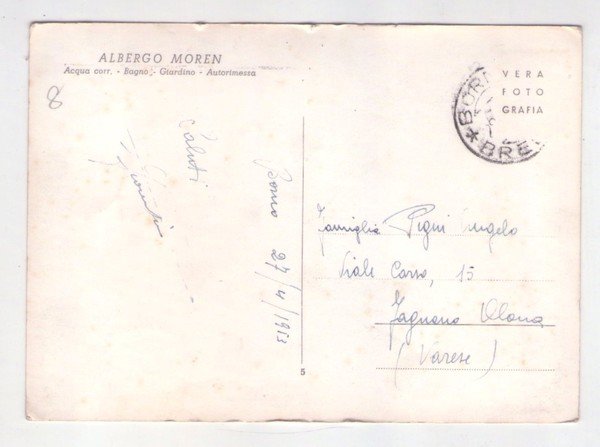 ALBERGO MOREN
Acqua corr. - Bagno - Giardino - Autorimessa
8
Saluti
Borno 27/4/1953
5
VERA
FOTO
GRAFIA
BOR
BRE
Famiglia Pigni Angelo
Viale Corso, 15
Fagnano Olona
(Varese)